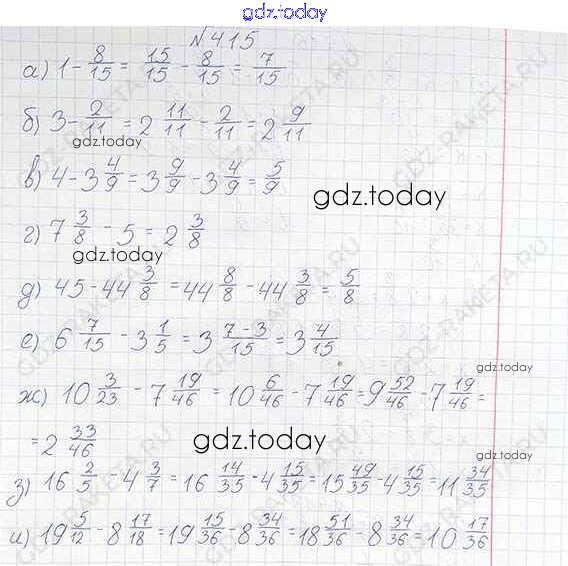 gdz.today
№415
а) 1 - 8/15 = 15/15 - 8/15 = 7/15
б) 3 - 2/11 = 2 11/11 - 2/11 = 2 9/11
gdz.today
в) 4 - 3 4/9 = 3 9/9 - 3 4/9 = 5/9
gdz.today
г) 7 3/8 - 5 = 2 3/8
gdz.today
д) 45 - 44 3/8 = 44 8/8 - 44 3/8 = 5/8
е) 6 7/15 - 3 1/5 = 3 (7-3)/15 = 3 4/15
gdz.today
ж) 10 3/23 - 7 19/46 = 10 6/46 - 7 19/46 = 9 52/46 - 7 19/46 =
= 2 33/46
gdz.today
gdz.today
з) 16 2/5 - 4 3/7 = 16 14/35 - 4 15/35 = 15 49/35 - 4 15/35 = 11 34/35
и) 19 5/12 - 8 17/18 = 19 15/36 - 8 34/36 = 18 51/36 - 8 34/36 = 10 17/36